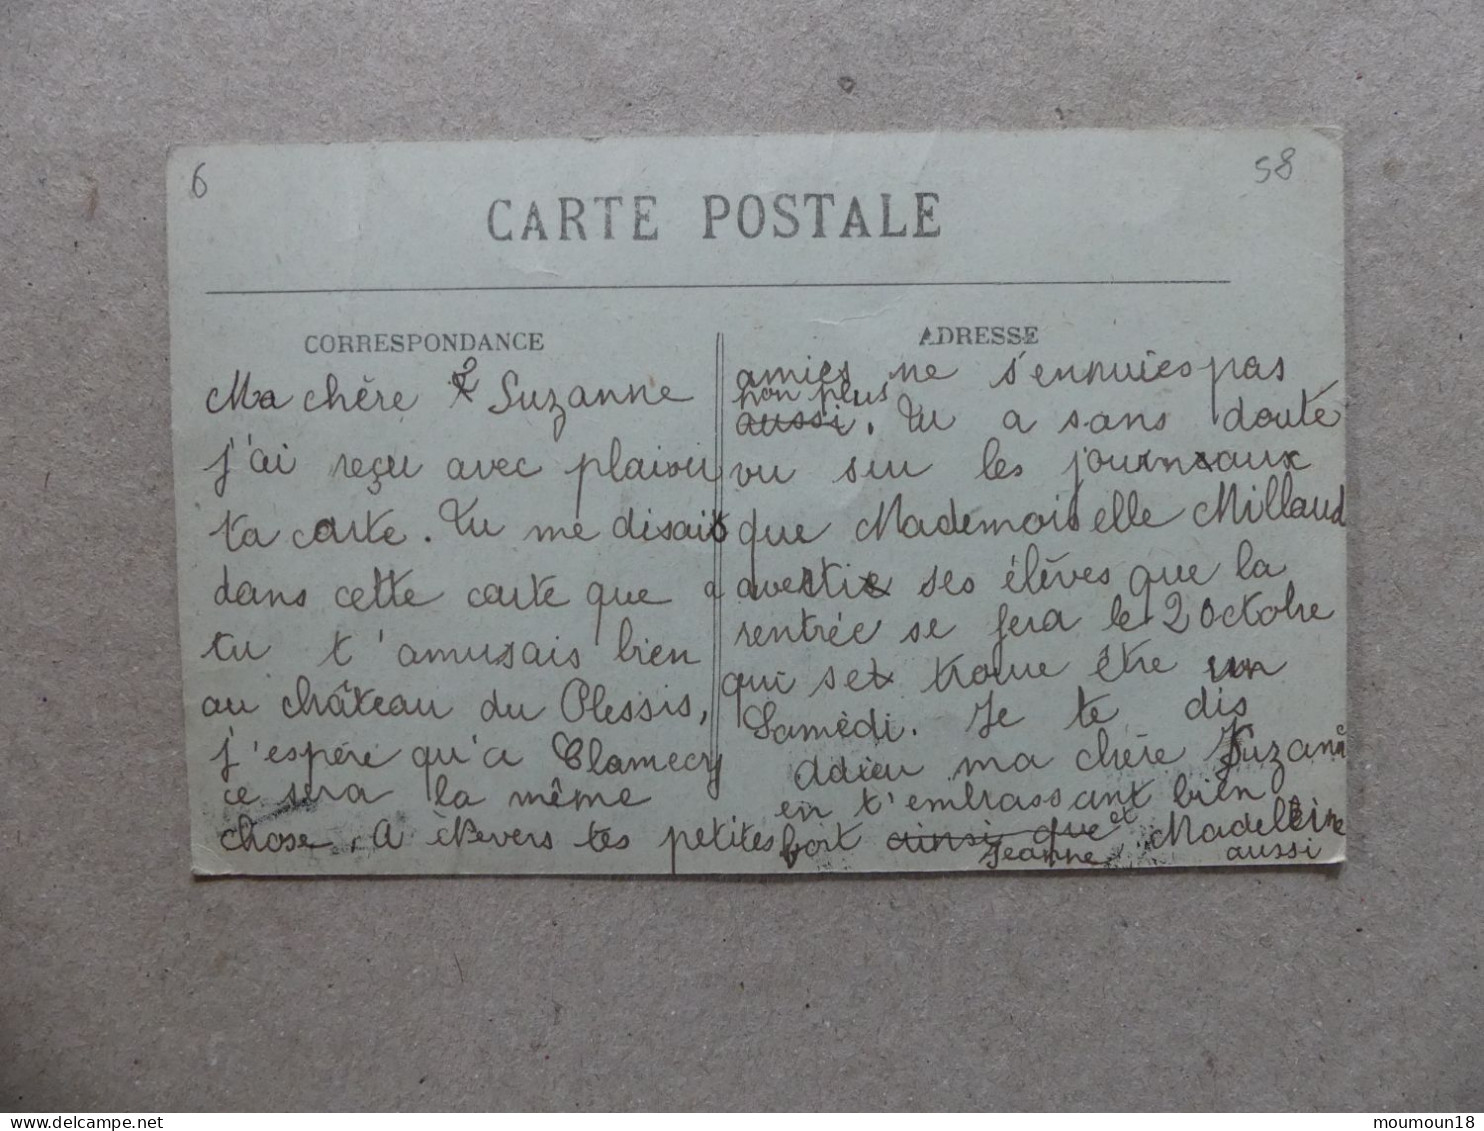 6
58
CARTE POSTALE
CORRESPONDANCE
Ma chère Suzanne
j'ai reçu avec plaisir
ta carte. Tu me disais
dans cette carte que
tu t'amusais bien
au château du Plessis,
j'espère qu'a Clamecy
ce sera la même
chose. A Nevers tes petites
ADRESSE
amies ne s'ennuies pas
non plus
aussi. Tu a sans doute
vu sur les journaux
que Mademoiselle Millaud
avertie ses élèves que la
rentrée se fera le 2 octobre
qui se trouve être un
Samedi. Je te dis
Adieu ma chère Suzanne
en t'embrassant bien
fort ainsi que et Madeleine
Jeanne aussi
moumoun18